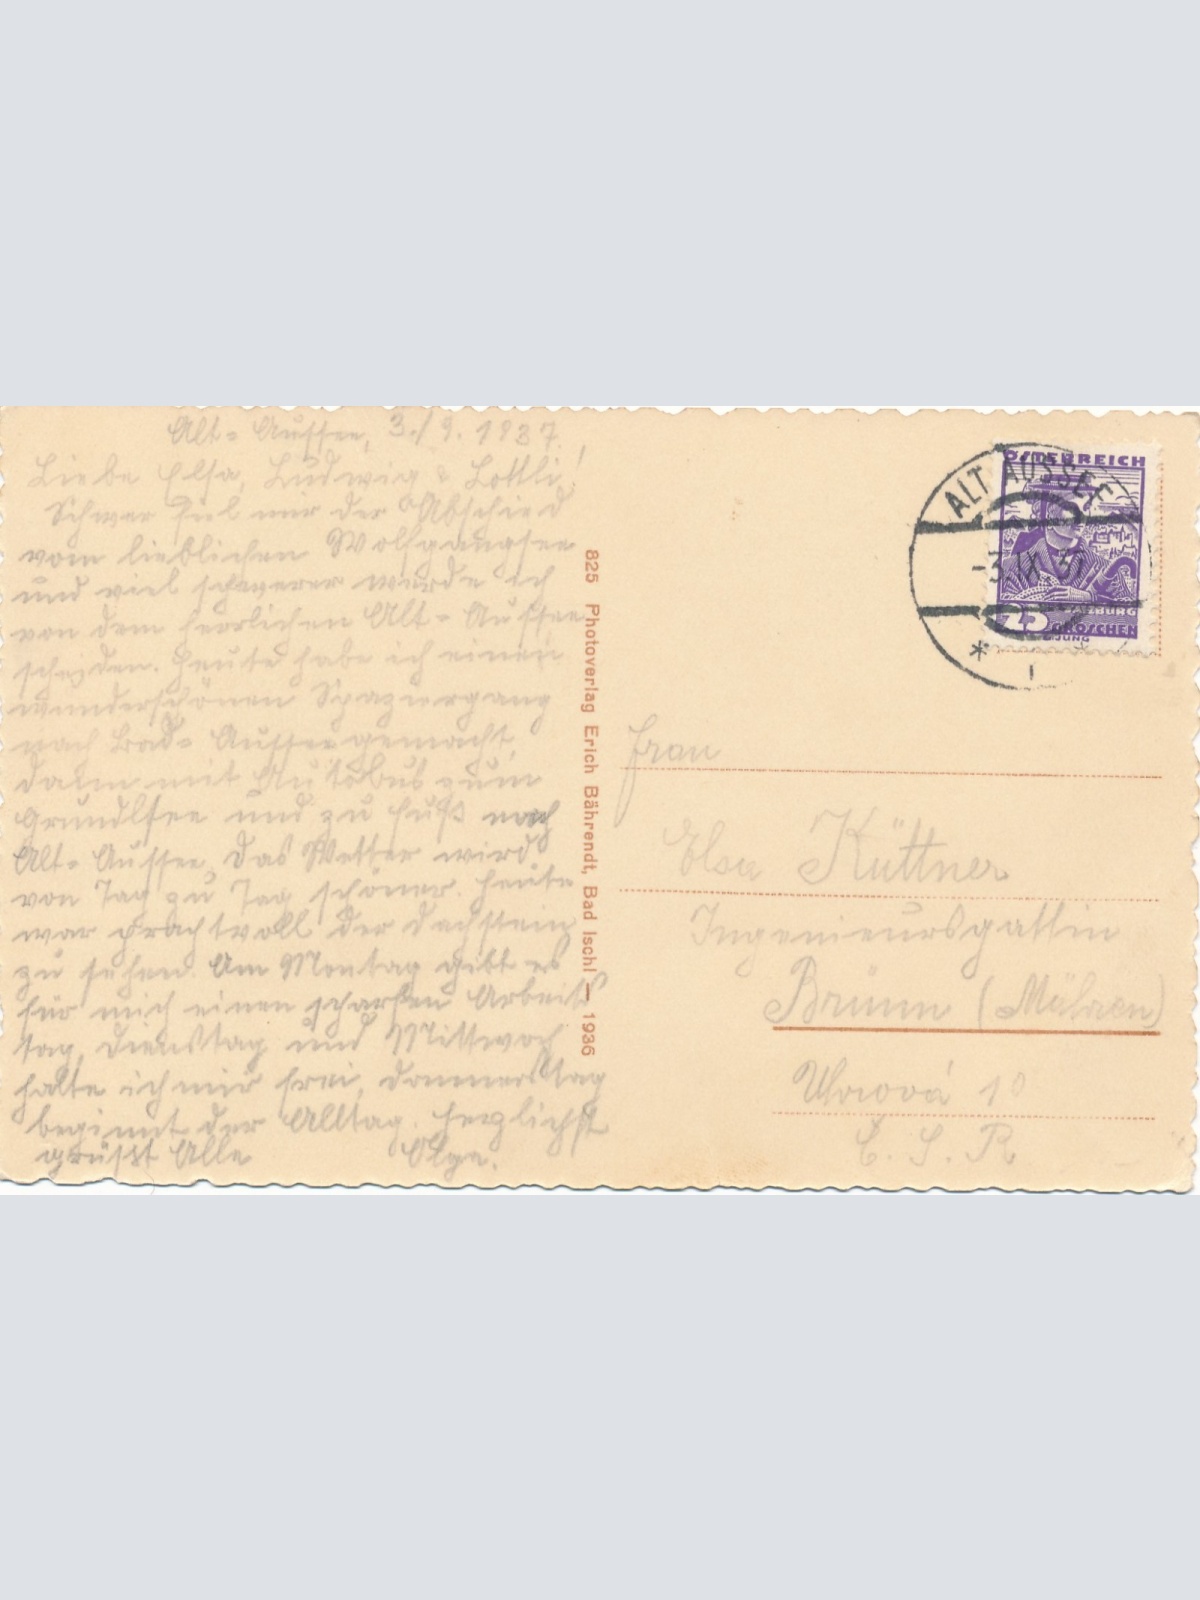 Alt-Aussee, 3./9. 1937.
Liebe Elsa, Ludwig & Lottli!
Schwer fiel mir der Abschied
vom lieblichen Wolfgangsee
und viel schwerer werde ich
von dem herrlichen Alt-Aussee
scheiden. Heute habe ich einen
wunderschönen Spaziergang
nach Bad-Aussee gemacht,
dann mit Autobus zum
Grundlsee und zu Fuß nach
Alt-Aussee. Das Wetter wird
von Tag zu Tag schöner. Heute
war prachtvoll der Dachstein
zu sehen. Am Montag gibt es
für mich einen scharfen Arbeits
tag, Dienstag und Mittwoch
halte ich mir frei, Donnerstag
beginnt der Alltag. Herzlichst
grüßt Alle Olga.
825 Photoverlag Erich Bährendt, Bad Ischl — 1936
ÖSTERREICH
SALZBURG
25 GROSCHEN
JUNG
ALT AUSSEE
-3.IX.37
* *
Frau
Elsa Küttner
Ingenieursgattin
Brünn (Mähren)
10
Č. S. R.